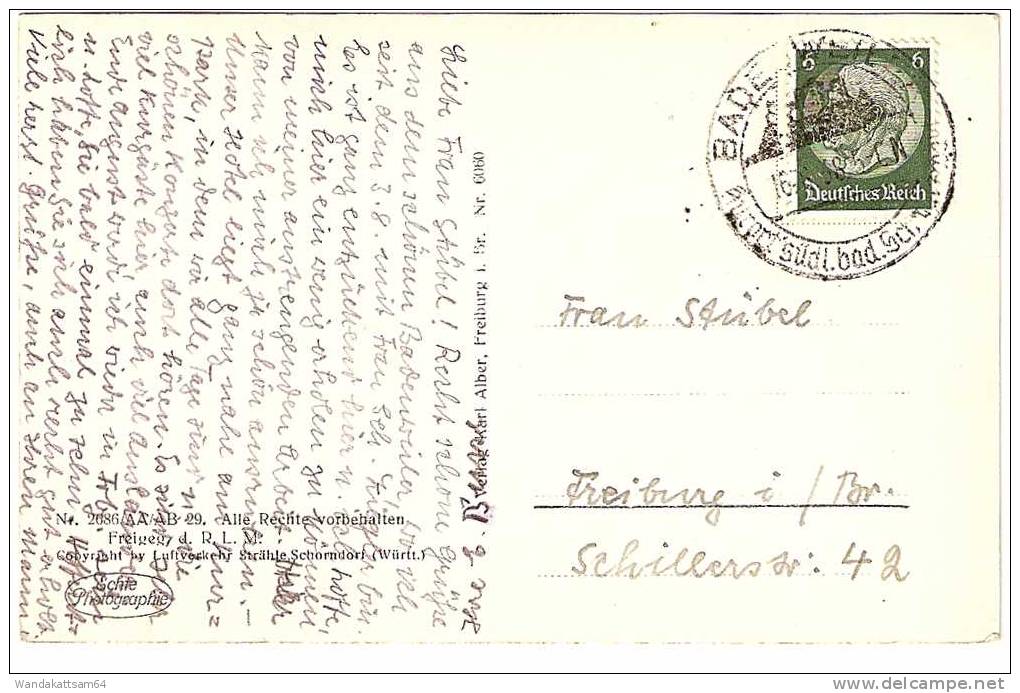 Liebe Frau Stübel! Recht schöne Grüße
aus dem schönen Badenweiler, wo ich
seit dem 3.8. mit Frau Sch. Krüger bin.
Es ist ganz entzückend hier u. ich hoffe,
mich hier ein wenig erholen zu können
von meiner anstrengenden Arbeit. Hier
kann ich mich ja schön ausruhen. –
Unser Hotel liegt ganz nahe am Kur=
park, in dem wir alle Tage sind u.
schönen Konzert dort hören. Es sind
viel Kurgäste hier auch viel Ausländer
Ende August werde ich wieder in Frbg. sein
u. hoffe, Sie bald einmal zu sehen. Hoffent=
lich haben Sie sich auch recht gut erholt.
Viele herzl. Grüße, auch an Ihren Mann
Verlag Karl Alber, Freiburg i. Br. Nr. 6060
Nr. 2686/AA/AB 29. Alle Rechte vorbehalten
Freigeg. d. R. L. M.
Copyright by Luftverkehr Strähle, Schorndorf (Württ.)
Echte
Photographie
6 6
Deutsches Reich
südl. bad.
Frau Stübel
Freiburg i/Br.
Schillerstr. 42
Wandakattsam64
delcampe.net